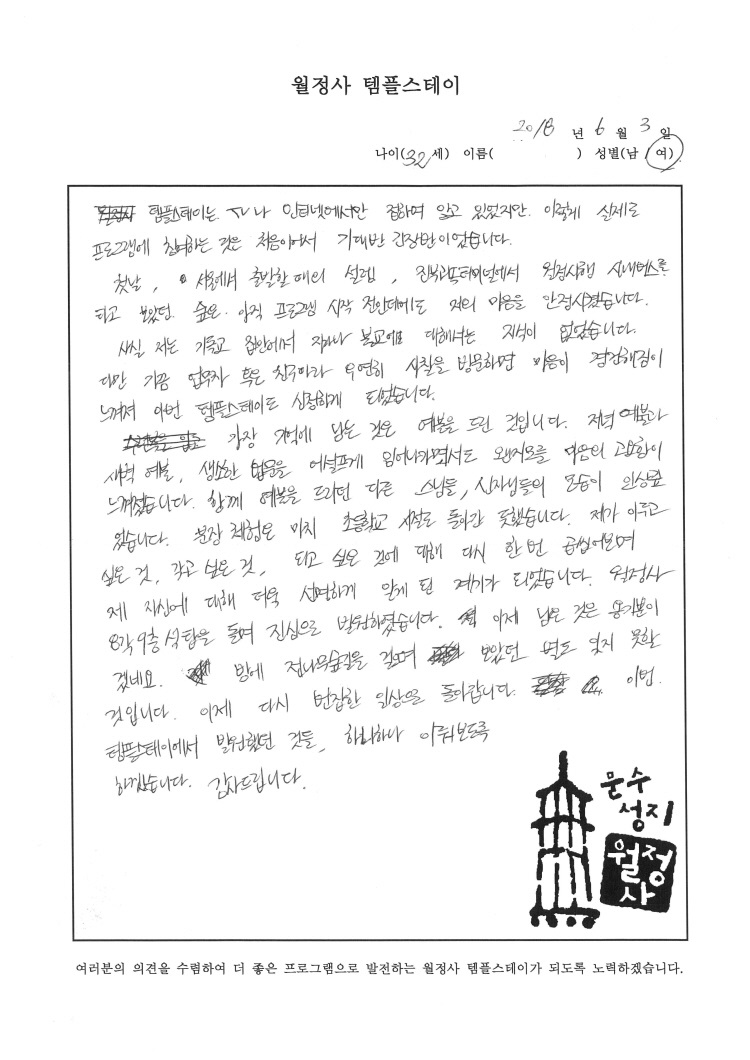 월정사 템플스테이
2018 년 6 월 3 일
나이(32세) 이름( ) 성별(남/여)
템플스테이는 TV나 인터넷에서만 접하여 알고 있었지만. 이렇게 실제로
프로그램에 참여하는 것은 처음이어서 기대반 긴장반이었습니다.
첫날, 서울에서 출발할 때의 설렘, 진부공용터미널에서 월정사행 시내버스를
타고 보았던 숲은 아직 프로그램 시작 전인데에도 저의 마음을 안정시켰습니다.
사실 저는 기독교 집안에서 자라나 불교에 대해서는 지식이 없었습니다.
다만 가끔 업무차 혹은 친구따라 우연히 사찰을 방문하면 마음이 경건해짐이
느껴져 이번 템플스테이도 신청하게 되었습니다.
가장 기억에 남는 것은 예불을 드린 것입니다. 저녁 예불과
새벽 예불, 생소한 법문을 어설프게 읽어나가면서도 왠지모를 마음의 고요함이
느껴졌습니다. 함께 예불을 드리던 다른 스님들, 신자님들의 모습이 인상깊
었습니다. 체험은 마치 초등학교 시절로 돌아간 듯했습니다. 제가 이루고
싶은 것, 갖고 싶은 것, 되고 싶은 것에 대해 다시 한 번 곱씹어보며
제 자신에 대해 더욱 선명하게 알게 된 계기가 되었습니다. 월정사
8각9층석탑을 돌며 진심으로 발원하였습니다. 이제 남은 것은 용기뿐이
겠네요. 밤에 전나무숲길을 걸으며 보았던 별도 잊지 못할
것입니다. 이제 다시 번잡한 일상으로 돌아갑니다. 이번
템플스테이에서 발원했던 것들, 하나하나 이뤄보도록
하겠습니다. 감사드립니다.
문수
성지
월정
사
여러분의 의견을 수렴하여 더 좋은 프로그램으로 발전하는 월정사 템플스테이가 되도록 노력하겠습니다.